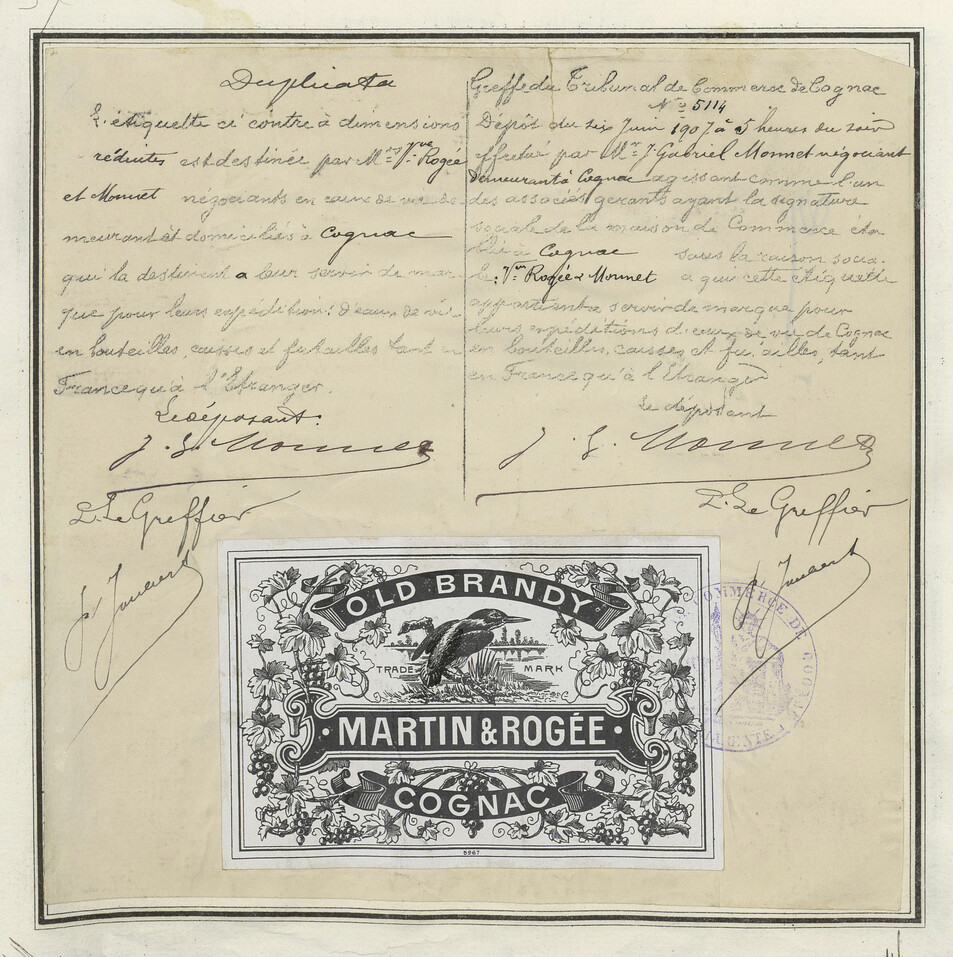 Duplicata
L'étiquette ci contre à dimensions
réduites est destinée par Mrs Vve Rogée
et Monnet négociants en eaux de vie de
meurant et domiciliés à Cognac
qui la destinent a leur servir de mar
que pour leurs expéditions d'eaux de vie
en bouteilles, caisses et futailles tant en
France qu'à l'Etranger.
Le déposant:
J. G. Monnet
P. Le Greffier
Greffe du Tribunal de Commerce de Cognac
No 5114
Dépôt du six Juin 1907 à 5 heures du soir
effectué par Mr J. Gabriel Monnet négociant
demeurant à Cognac agissant comme l'un
des associés gérants ayant la signature
sociale de la maison de Commerce éta
blie à Cognac sous la raison socia.
le: Vve Rogée & Monnet a qui cette étiquette
appartient & servir de marque pour
leurs expéditions d'eaux de vie de Cognac
en bouteilles, caisses et futailles, tant
en France qu'à l'Etranger
Le déposant
J. G. Monnet
P. Le Greffier
OLD BRANDY
TRADE MARK
MARTIN & ROGÉE
COGNAC
5967
COMMERCE DE COGNAC